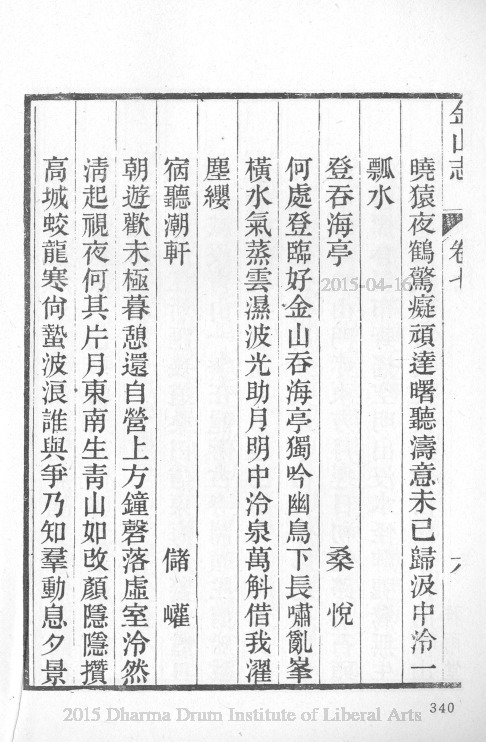 金山志 卷七 六
曉猿夜鶴驚癡頑達曙聽濤意未已歸汲中泠一
瓢水
登吞海亭 桑悅
何處登臨好金山吞海亭獨吟幽鳥下長嘯亂峯
橫水氣蒸雲濕波光助月明中泠泉萬斛借我濯
塵纓
宿聽潮軒 儲巏
朝遊歡未極暮憩還自營上方鐘磬落虛室泠然
淸起視夜何其片月東南生靑山如改顏隱隱攢
高城蛟龍寒尙蟄波浪誰與爭乃知羣動息夕景
340
2015-04-16
2015 Dharma Drum Institute of Liberal Arts